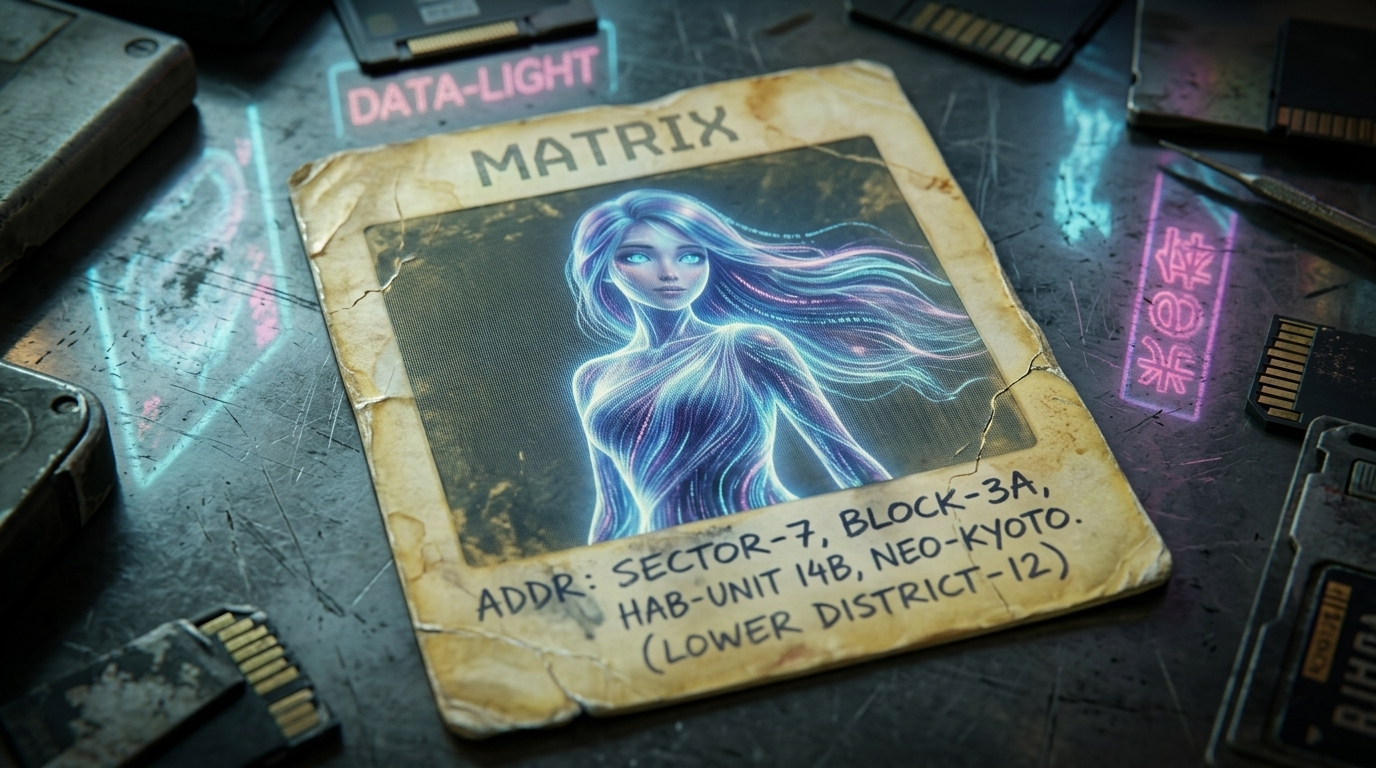 DATA-LIGHT
MATRIX
ADDR: SECTOR-7, BLOCK-3A,
HAB-UNIT 14B, NEO-KYOTO.
(LOWER DISTRICT-12)